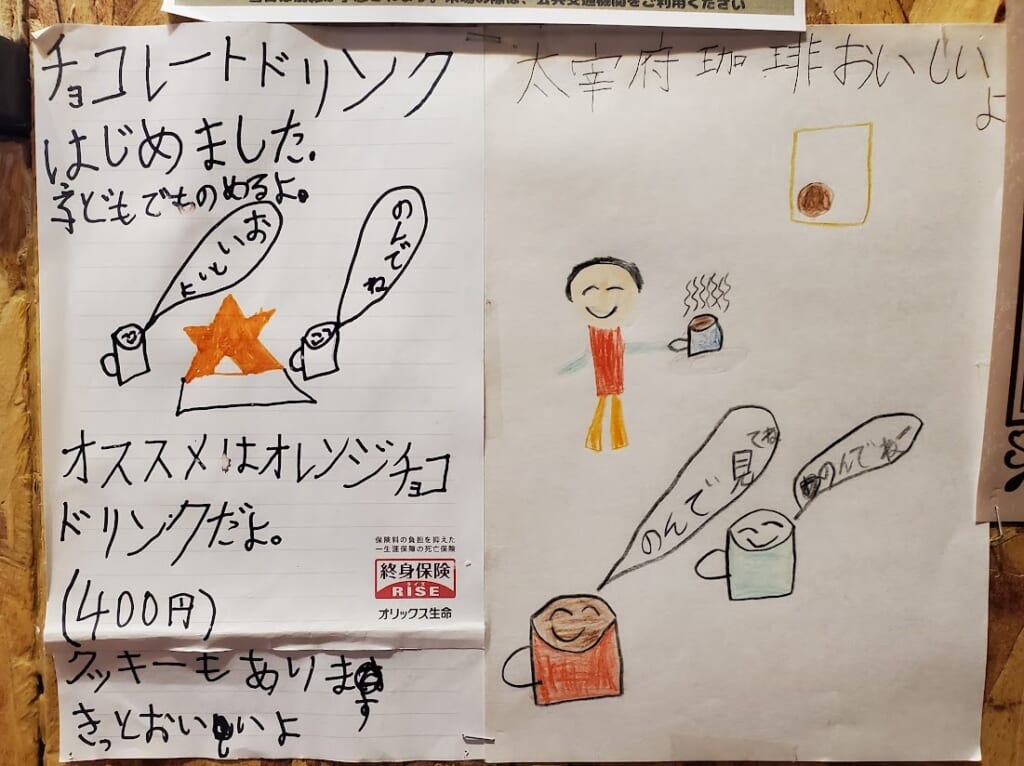 当日は混雑が予想されます。来場の際は、公共交通機関をご利用ください
チョコレートドリンク
はじめました.
子どもでものめるよ。
おいしいよ
のんでね
オススメはオレンジチョコ
ドリンクだよ。
保険料の負担を抑えた
一生涯保障の死亡保険
終身保険
ライズ
RISE
オリックス生命
(400円)
クッキーもあります
きっとおいしいよ
太宰府珈琲おいしい
よ
のんで見
てね
のんでねー